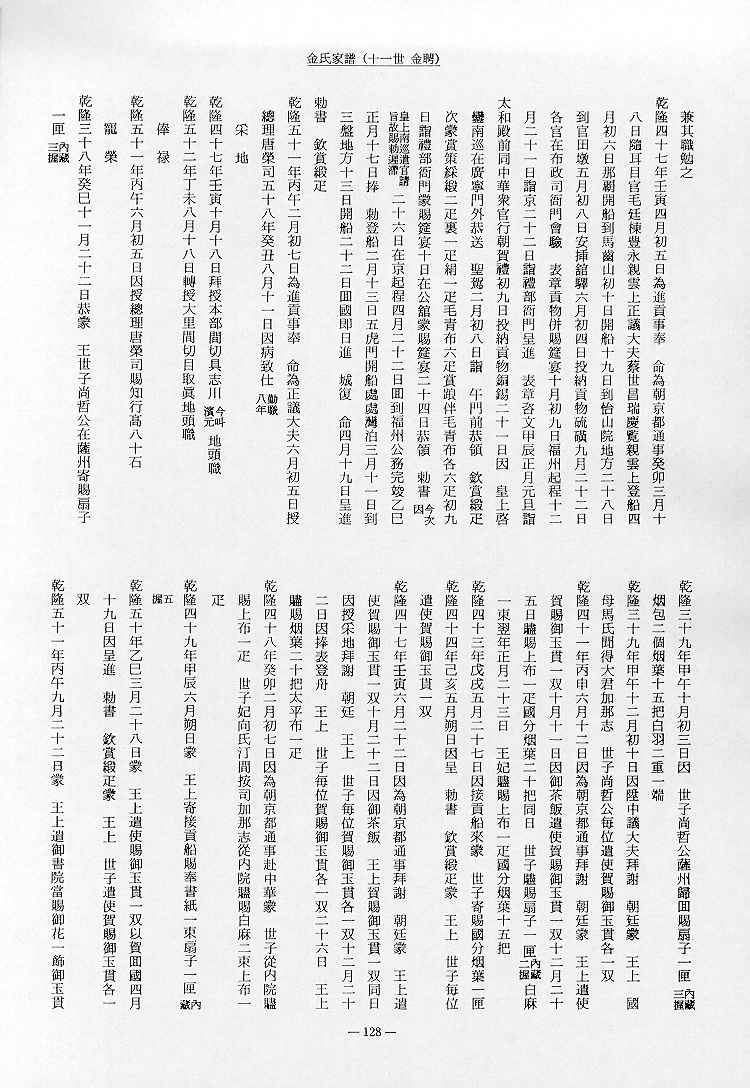 金氏家譜（十一世 金聘）
兼其職勉之
乾隆四十七年壬寅四月初五日為進貢事奉　命為朝京都通事癸卯三月十
八日隨耳目官毛廷棟豊永親雲上正議大夫蔡世昌瑞慶覧親雲上登船四
月初六日那覇開船到馬齒山初十日開船十九日到怡山院地方二十八日
到官田墩五月初八日安挿舘驛六月初四日投納貢物硫磺九月二十二日
各官在布政司衙門會驗　表章貢物併賜筵宴十月初九日福州起程十二
月二十一日詣京二十二日詣禮部衙門呈進　表章咨文甲辰正月元旦詣
太和殿前同中華衆官行朝賀禮初九日投納貢物銅錫二十一日因　皇上啓
鑾南巡在廣寧門外恭送　聖駕二月初八日詣　午門前恭領　欽賞緞疋
次蒙賞策綵緞二疋裏一疋絹一疋毛青布六疋賞跟伴毛青布各六疋初九
日詣禮部衙門蒙賜筵宴十日在公舘蒙賜筵宴二十四日恭領　勅書 因今次
皇上南巡遣官請旨故賜勅遲滯　二十六日在京起程四月二十二日囬到福州公務完竣乙巳
正月十七日捧　勅登船二月十三日五虎門開船處處灣泊三月十一日到
三盤地方十三日開船二十二日囬國即日進　城復　命四月十九日呈進
勅書　欽賞緞疋
乾隆五十一年丙午二月初七日為進貢事奉　命為正議大夫六月初五日授
總理唐榮司五十八年癸丑八月十一日因病致仕 勤職八年
采　地
乾隆四十七年壬寅十月十八日拜授本部間切具志川 今叫濱元 地頭職
乾隆五十二年丁未八月十八日轉授大里間切目取眞地頭職
俸　禄
乾隆五十一年丙午六月初五日因授總理唐榮司賜知行高八十石
寵　榮
乾隆三十八年癸巳十一月二十二日恭蒙　王世子尚哲公在薩州寄賜扇子
一匣 內藏三握
乾隆三十九年甲午十月初三日因　世子尚哲公薩州歸囬賜扇子一匣 內藏三握
烟包二個烟葉十五把白羽二重一端
乾隆三十九年甲午十二月初十日因陞中議大夫拜謝　朝廷蒙　王上　國
母馬氏聞得大君加那志　世子尚哲公每位遣使賀賜御玉貫各一双
乾隆四十一年丙申六月十二日因為朝京都通事拜謝　朝廷蒙　王上遣使
賀賜御玉貫一双十月十一日因御茶飯遣使賀賜御玉貫一双十二月二十
五日贐賜上布一疋國分烟葉二十把同日　世子贐賜扇子一匣 內藏二握 白麻
一束翌年正月二十三日　王妃贐賜上布一疋國分烟葉十五把
乾隆四十三年戊戌五月二十七日因接貢船來蒙　世子寄賜國分烟葉一匣
乾隆四十四年己亥五月朔日因呈　勅書　欽賞緞疋蒙　王上　世子每位
遣使賀賜御玉貫一双
乾隆四十七年壬寅六月二十二日因為朝京都通事拜謝　朝廷蒙　王上遣
使賀賜御玉貫一双十月二十二日因御茶飯　王上賀賜御玉貫一双同日
因授采地拜謝　朝廷　王上　世子每位賀賜御玉貫各一双十二月二十
二日因捧表登舟　王上　世子每位賀賜御玉貫各一双二十六日　王上
贐賜烟葉二十把太平布一疋
乾隆四十八年癸卯二月初七日因為朝京都通事赴中華蒙　世子從內院贐
賜上布一疋　世子妃向氏汀間按司加那志從内院贐賜白麻二束上布一
疋
乾隆四十九年甲辰六月朔日蒙　王上寄接貢船賜奉書紙一束扇子一匣 內藏
五握
乾隆五十年乙巳三月二十八日蒙　王上遣使賜御玉貫一双以賀囬國四月
十九日因呈進　勅書　欽賞緞疋蒙　王上　世子遣使賀賜御玉貫各一
双
乾隆五十一年丙午九月二十二日蒙　王上遣御書院當賜御花一飾御玉貫
— 128 —